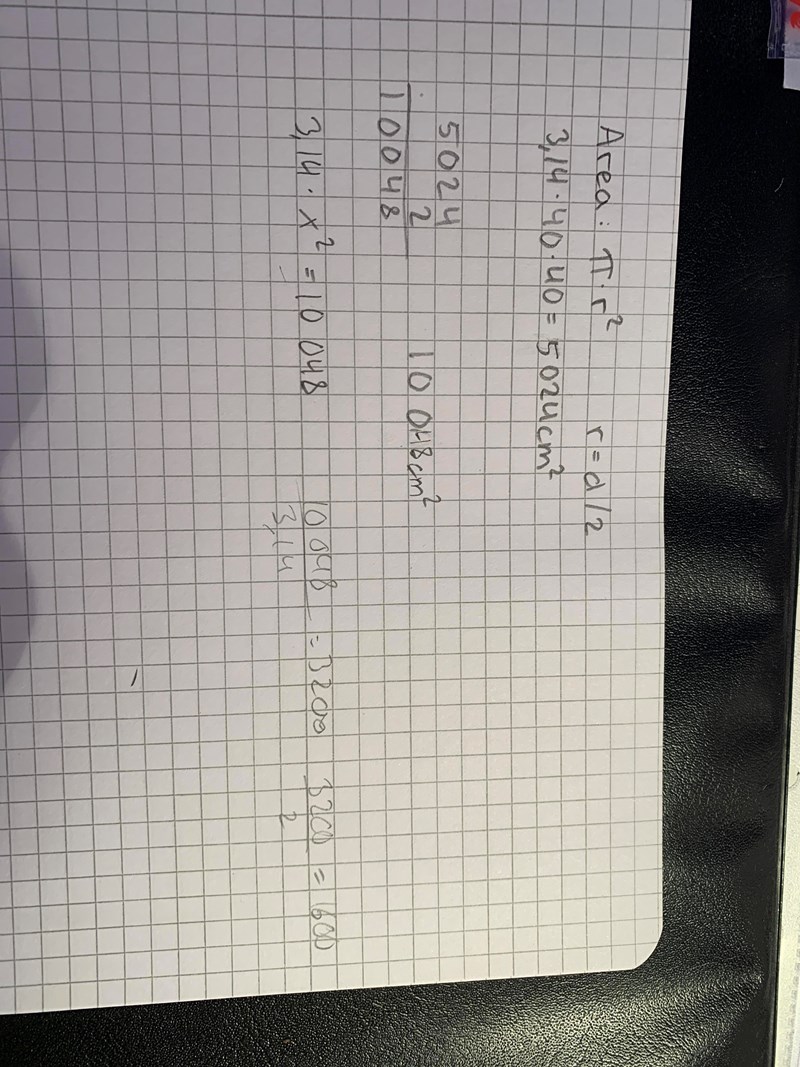 Area: π·r² r=d/2
3,14·40·40=5024cm²
5024
2
10048
10 048cm²
3,14·x²=10 048
10 048
3,14
=3200
3200
2
=1600